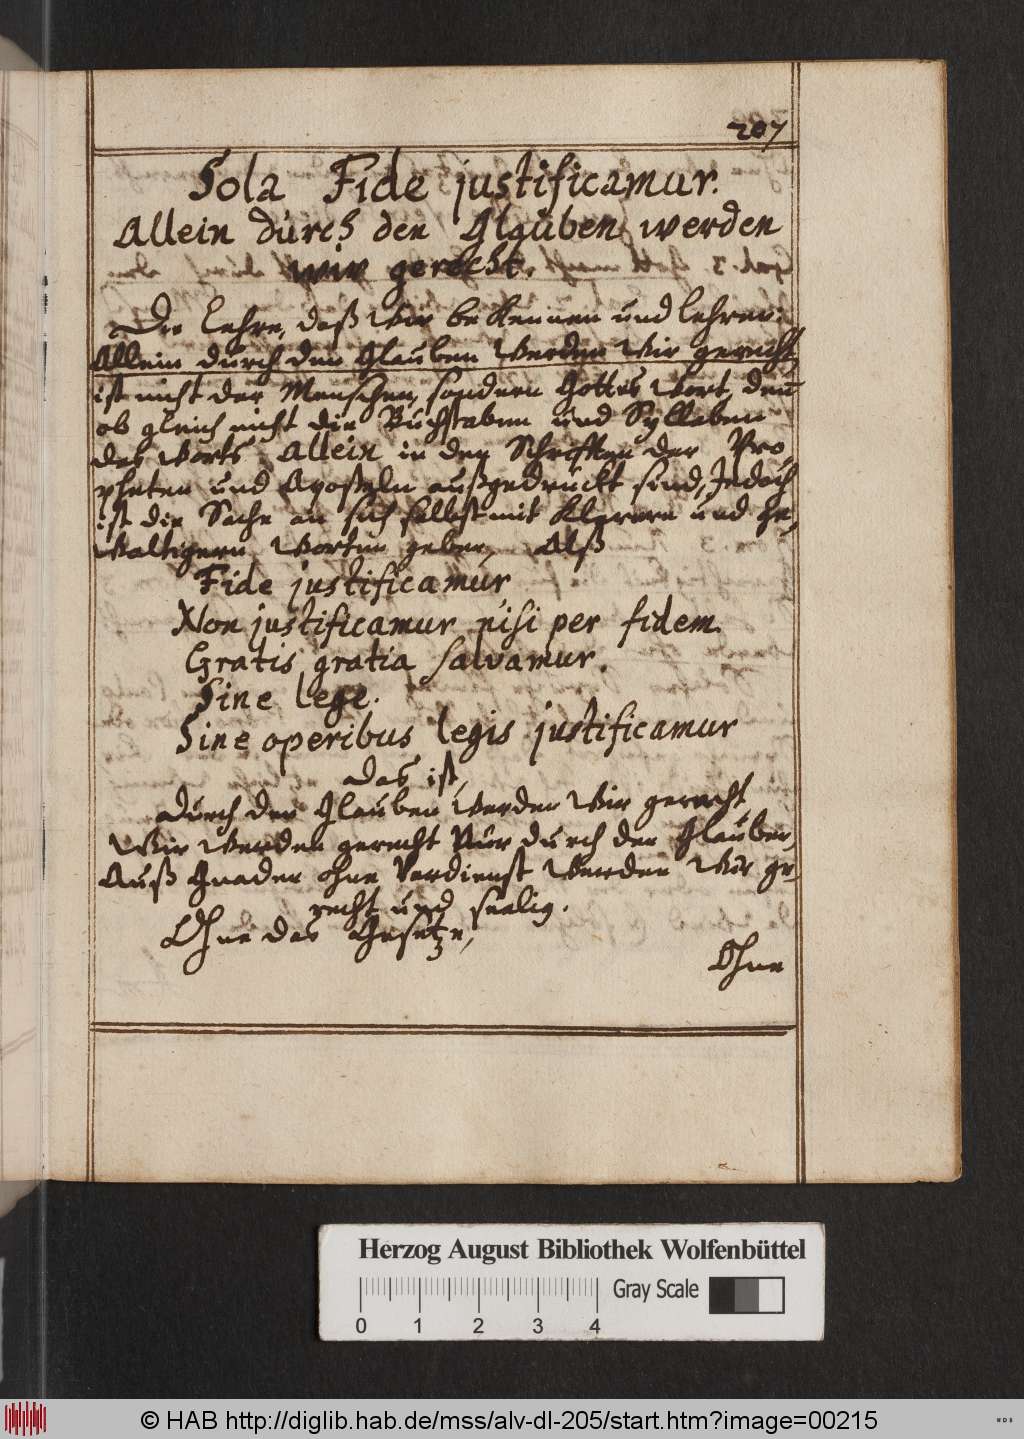 207
Sola Fide justificamur.
Allein durch den Glauben werden
wir gerecht.
Die Lehre, daß Wir bekennen und lehren:
Allein durch den Glauben Werden Wir gerecht,
ist nicht der Menschen, sondern Gottes Wort, den̄
ob gleich nicht die Buchstaben und Syllaben
des Worts Allein in den Schrifften der Pro,
pheten und Aposteln außgedruckt sind, Jedoch
ist die Sache an sich selbst mit klarern und ge,
Waltigern Worten geben, Alß
Fide justificamur
Non justificamur nisi per fidem.
Gratis gratia salvamur.
Sine lege.
Sine operibus legis justificamur
Das ist,
Durch den Glauben Werden Wir gerecht
Wir Werden gerecht Nur durch den Glauben,
Auß Gnaden ohne Verdienst Werden Wir ge-
recht und seelig.
Ohne das Gesetze,
Ohne
Herzog August Bibliothek Wolfenbüttel
Gray Scale
0 1 2 3 4
© HAB http://diglib.hab.de/mss/alv-dl-205/start.htm?image=00215
WDB